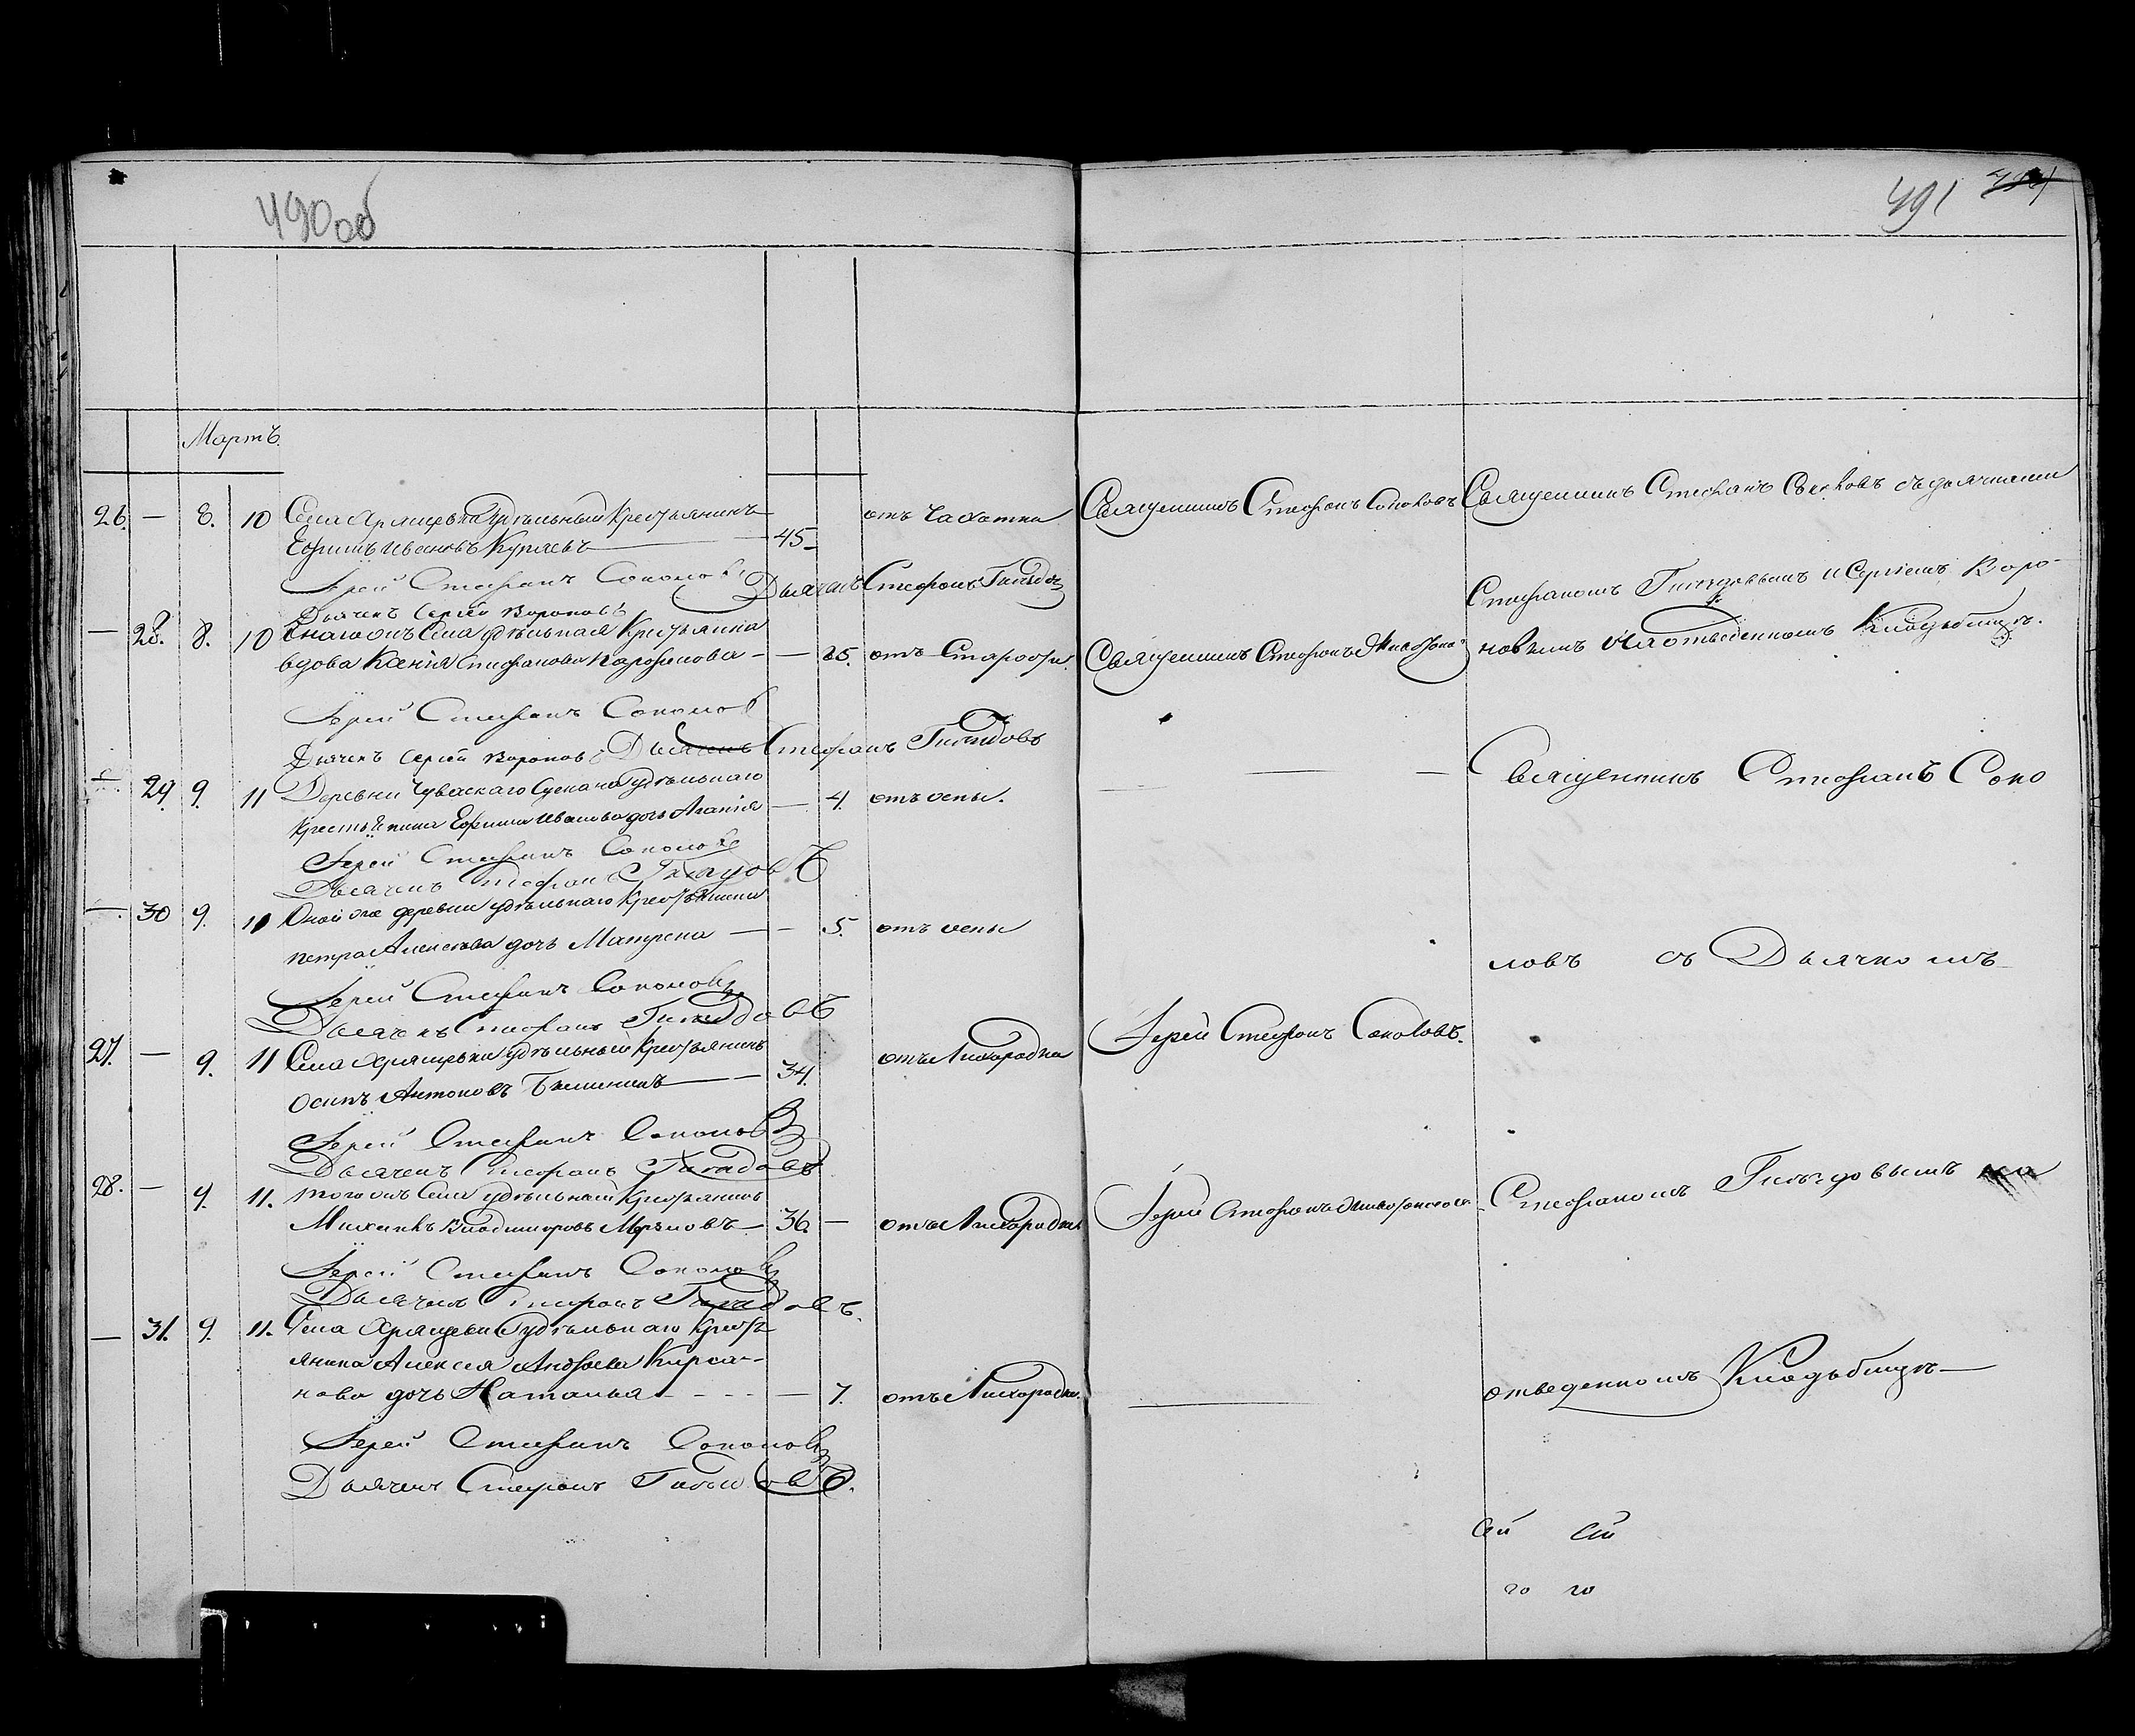 490об
491
Мартъ.
26. — 8. 10 Села Хрящевки Удѣльный Крестьянинъ
Ефимъ Ивановъ — 45 — отъ Чахотки Священникъ Стефанъ Соколовъ
Іерей Стефанъ Соколовъ Дьячекъ Стефанъ
Дьячекъ Сергей Вороновъ
— 28. 8. 10 Села удѣльная Крестьянка
вдова Ксенія Стефанова — — 85. отъ Старости Священникъ Стефанъ
Іерей Стефанъ Соколовъ
Дьячекъ Сергей Вороновъ Дьячекъ Стефанъ Гнѣздовъ
— 29 9. 11 Деревни Чувскаго Сускана Удѣльнаго
Крестьянина Ефима Иванова дочь Агапія — 4. отъ оспы. — —
Іерей Стефанъ Соколовъ
Дьячекъ Стефанъ Гнѣздовъ
— 30 9. 11 Оной же деревни удѣльнаго Крестьянина
Петра Алексѣева дочь Матрена — — 5. отъ оспы
Іерей Стефанъ Соколовъ
Дьячекъ Стефанъ Гнѣздовъ
27. — 9. 11 Села Хрящевки удѣльный Крестьянинъ
Осипъ Антоновъ — 34. отъ Лихорадки Іерей Стефанъ Соколовъ.
Іерей Стефанъ Соколовъ
Дьячекъ Стефанъ Гнѣздовъ
28. — 9. 11. Того жъ Села удѣльный Крестьянинъ
Владимировъ — 36. — отъ Лихорадки Іерей Стефанъ
Іерей Стефанъ Соколовъ
Дьячекъ Стефанъ Гнѣздовъ.
— 31. 9. 11. Села Хрящевки Удѣльнаго Крестъ
янина Алексея Андреева Кирса-
нова дочь Наталья — — 7. отъ Лихорадки. —
Іерей Стефанъ Соколовъ
Дьячекъ Стефанъ
Священникъ Стефанъ Соколовъ съ дьячками
Стефаномъ Гнѣздовымъ и Сергіемъ Воро-
новымъ на отведенномъ Кладьбищѣ.
Священникъ Стефанъ Соко
ловъ съ Дьячкомъ
Стефаномъ Гнѣздовымъ на
отведенномъ Кладьбищѣ —
ей ей
го го